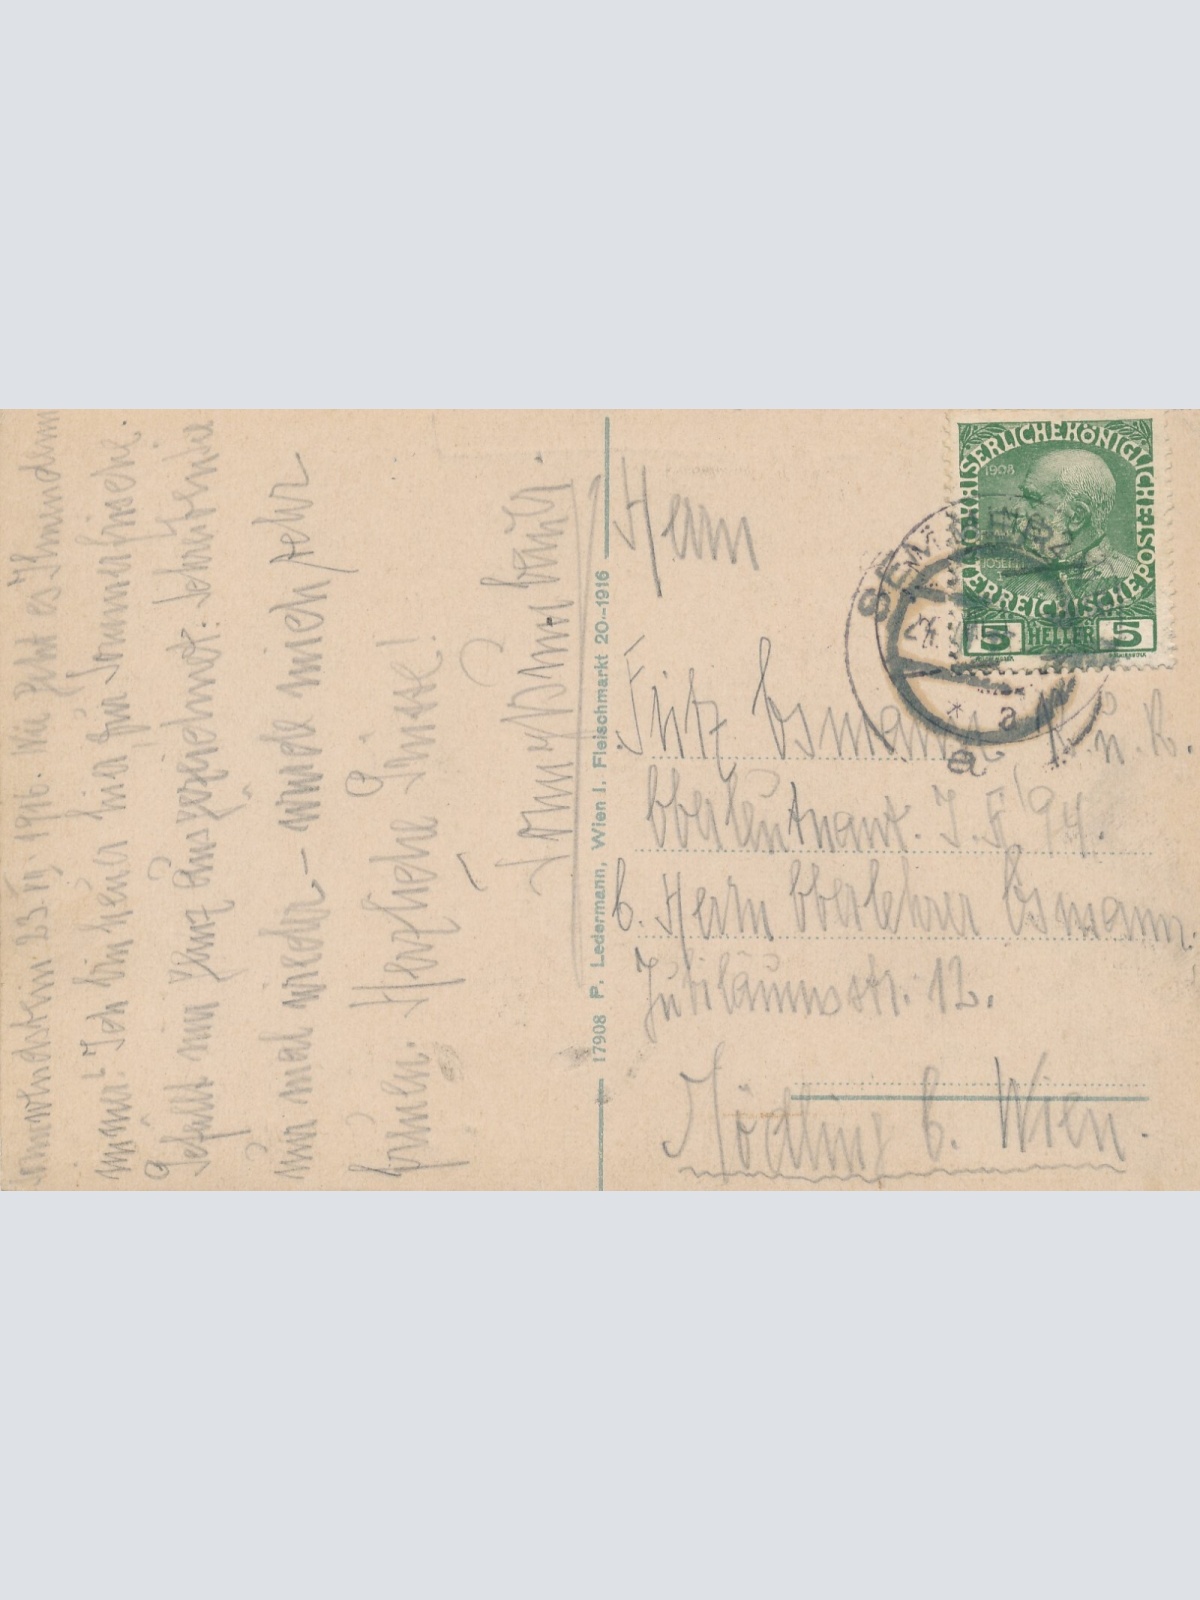 23. VII. 1916. Wie geht es Ihnen denn
immer? Ich bin heuer hier zur Sommerfrische.
Gefällt mir ganz ausgezeichnet. Schreiben Sie
mir mal wieder – würde mich sehr
freuen. Herzliche Grüsse!
17908 P. Ledermann, Wien I. Fleischmarkt 20.–1916
KAISERLICHE KÖNIGLICHE
ÖSTERREICHISCHE POST
1908
5 HELLER 5
SEMMERING
24. VII.
* a
Herrn
Fritz Esmann k. u. k.
Oberleutnant. I. R. 94.
b. Herrn Oberlehrer Esmann.
Jubiläumsstr. 12.
Mödling b. Wien.